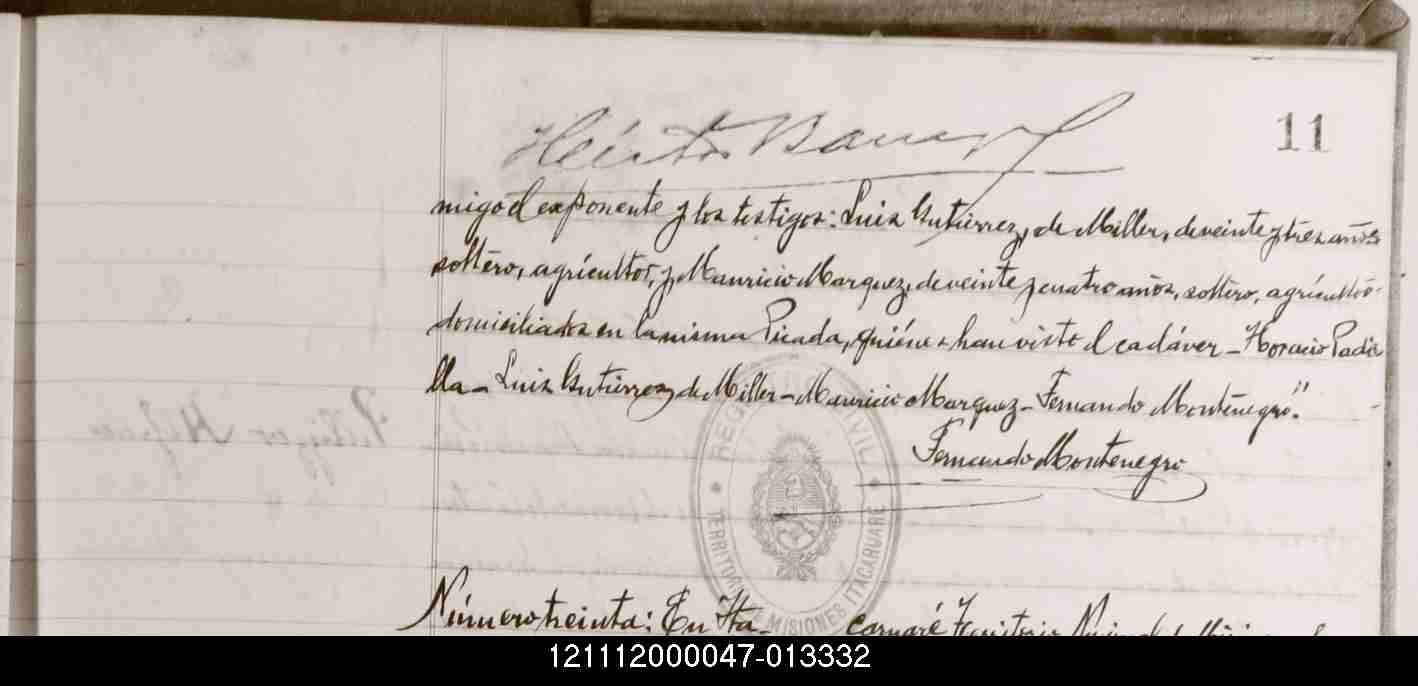 11
Héctor
migo el exponente y los testigos: Luis Gutiérrez, de Miller, de veinte y tres años
soltéro, agrícultor, y, Mauricio Marquez, de veinte y cuatro años, soltéro, agrícultor
domiciliados en la misma Picada, quiénes han visto el cadáver - Horacio Padi
lla - Luis Gutiérrez de Miller - Mauricio Marquez - Fernando Monténegro."
Fernando Montenegro
REGISTRO CIVIL
TERRITORIO DE MISIONES ITACARUARE
Número treinta: En Ita-
caruaré Territorio
121112000047-013332